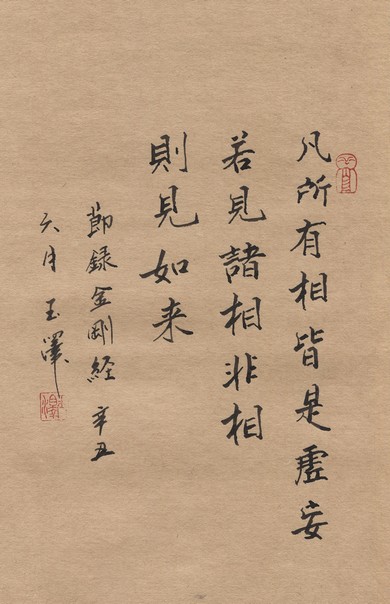 凡所有相皆是虛妄
若見諸相非相
則見如来
節録金剛経辛丑
六月玉澤